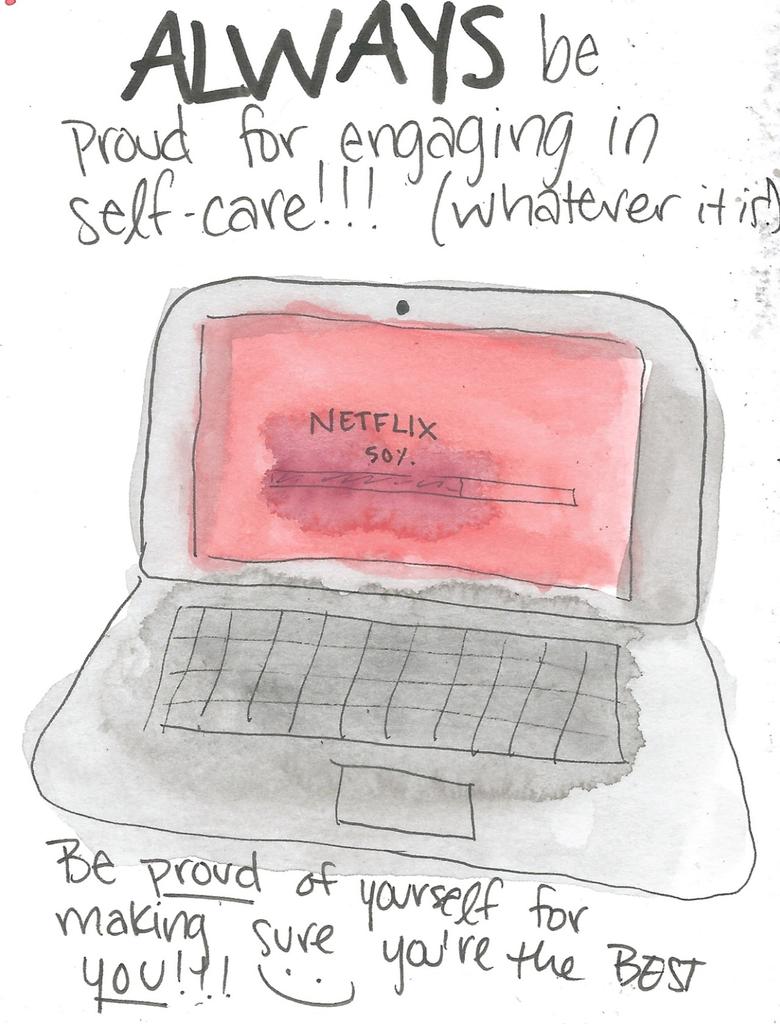 ALWAYS be
proud for engaging in
self-care!!! (whatever it is!)
NETFLIX
50%.
Be proud of yourself for
making sure you're the BEST
you!!!!